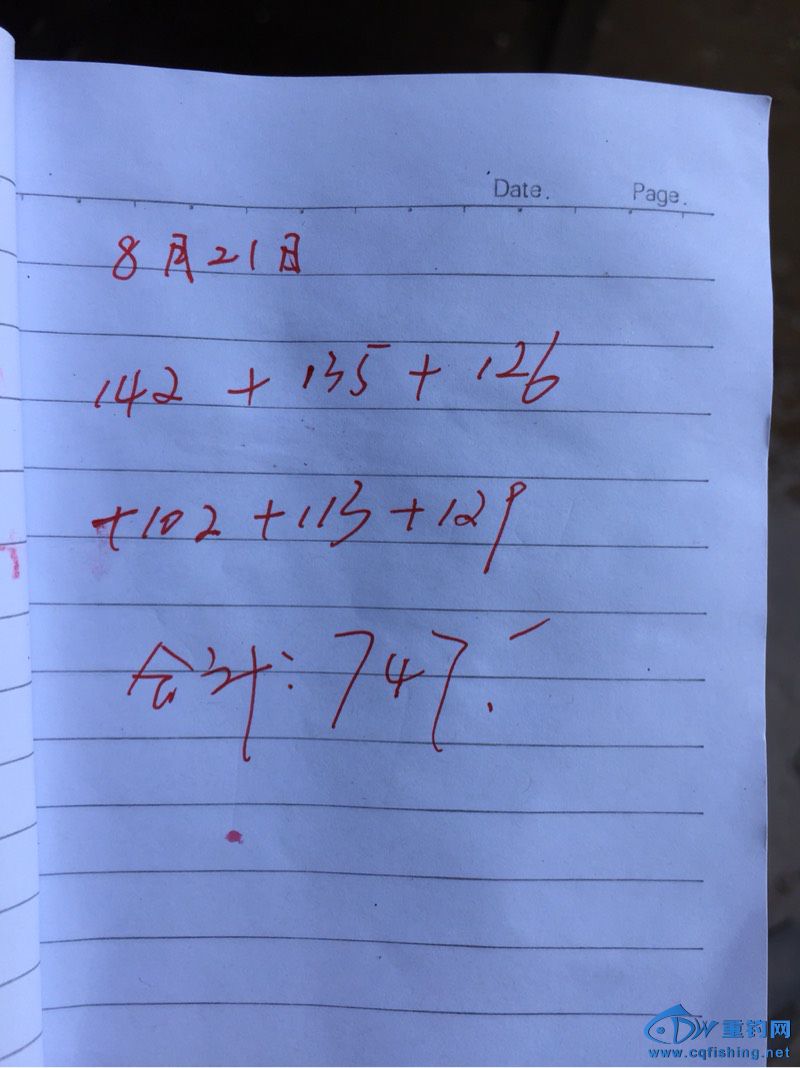 Date. Page.
8月21日
142 + 135 + 126
+102 +113 +129
合计: 747.
DW重钓网
www.cqfishing.net